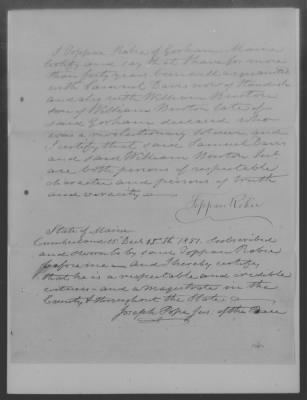 I Toppan Robie of Gorham Maine
certify and say that I have for more
than forty years been well acquainted
with Samuel Davis now of Standish
and also with William Burton
son of William Burton late of
said Gorham deceased who
was a revolutionary and
I certify that said Samuel Davis
and said William Burton
are both persons of respectable
character and persons of truth
and veracity
Toppan Robie
State of Maine
Cumberland ss Decr 15th 1851. Subscribed
and sworn to by said Toppan Robie
before me and I hereby certify
that he is a respectable and credible
witness and a magistrate in the
County & throughout the State
Joseph Pope Jus. of the Peace